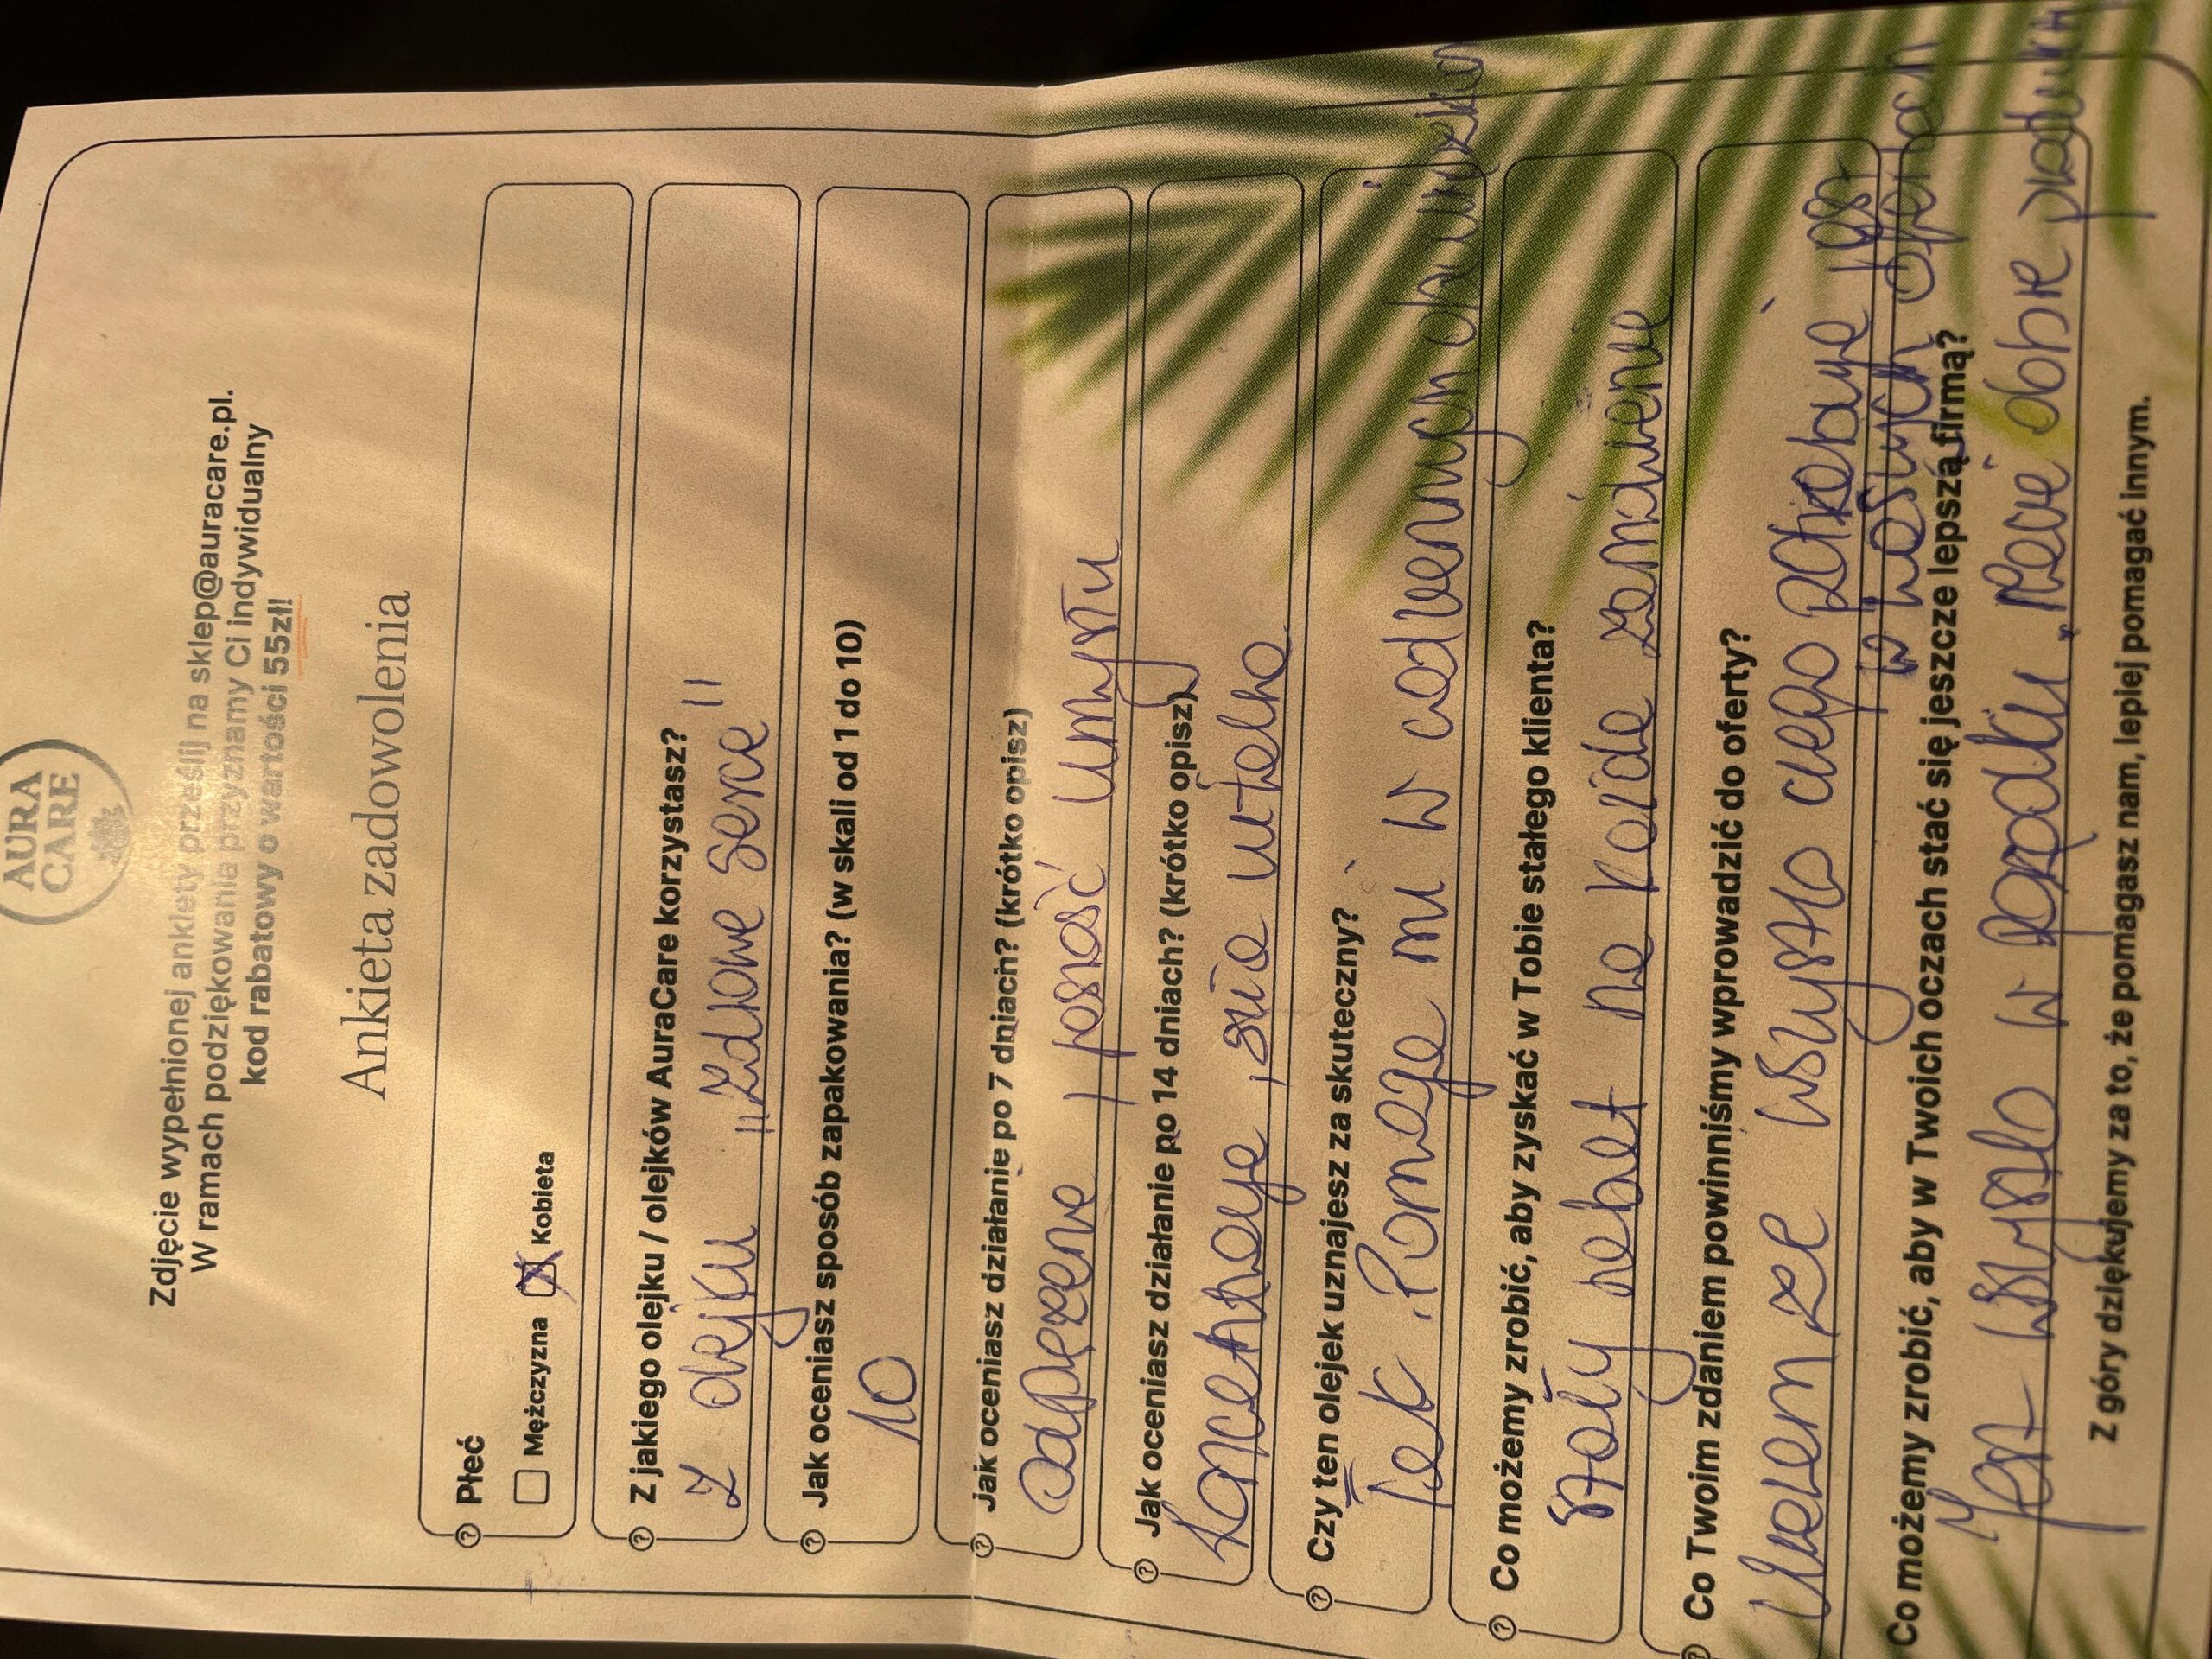 AURA
CARE
Zdjęcie wypełnionej ankiety prześlij na sklep@auracare.pl.
W ramach podziękowania przyznamy Ci indywidualny
kod rabatowy o wartości 55zł!
Ankieta zadowolenia
Płeć
Mężczyzna Kobieta
Z jakiego olejku / olejków AuraCare korzystasz?
Z olejku „Zdrowe serce"
Jak oceniasz sposób zapakowania? (w skali od 1 do 10)
10
Jak oceniasz działanie po 7 dniach? (krótko opisz)
odprężenie, jasność umysłu
Jak oceniasz działanie po 14 dniach? (krótko opisz)
koncentracja, siła witalna
Czy ten olejek uznajesz za skuteczny?
Tak. Pomaga mi w codziennym
Co możemy zrobić, aby zyskać w Tobie stałego klienta?
stały rabat na każde zamówienie
Co Twoim zdaniem powinniśmy wprowadzić do oferty?
Uważam że wszystko czego potrzebuję jest
w waszych ofertach
Co możemy zrobić, aby w Twoich oczach stać się jeszcze lepszą firmą?
Jest wszystko w porządku. Macie dobre produkty
Z góry dziękujemy za to, że pomagasz nam, lepiej pomagać innym.